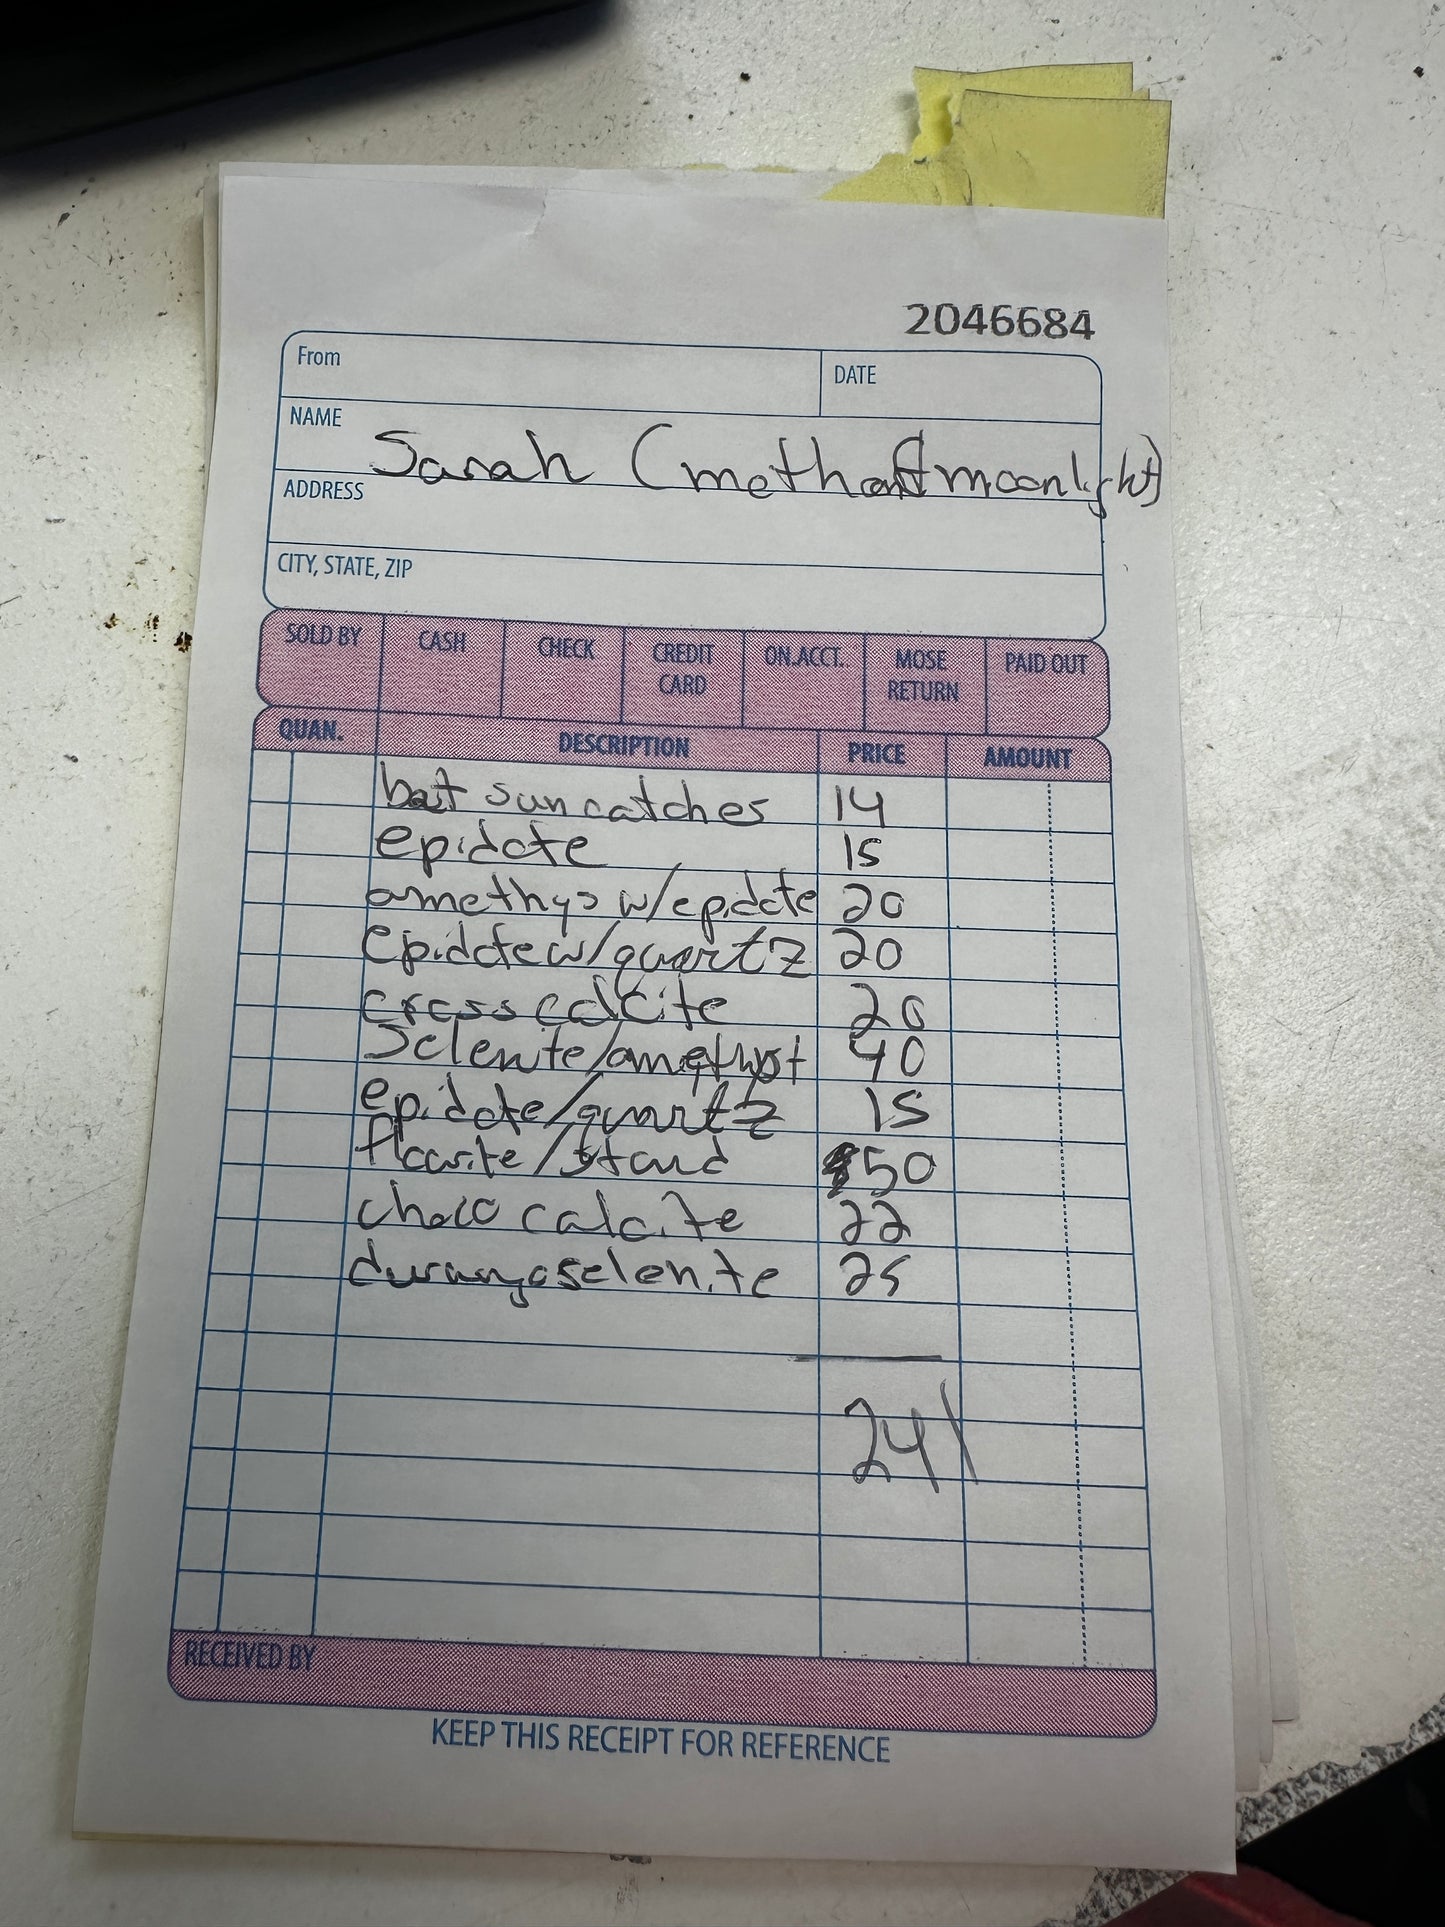 2046684
From
DATE
NAME Sarah (methanfmoonlight)
ADDRESS
CITY, STATE, ZIP
SOLD BY CASH CHECK CREDIT CARD ON.ACCT. MOSE RETURN PAID OUT
QUAN. DESCRIPTION PRICE AMOUNT
bat suncatches 14
epidote 15
amethys w/epidote 20
epidote w/quartz 20
cross calcite 20
Selenite/amethyst 40
epidote/quartz 15
/stand $50
choco calcite 22
durango selenite 25
241
RECEIVED BY
KEEP THIS RECEIPT FOR REFERENCE